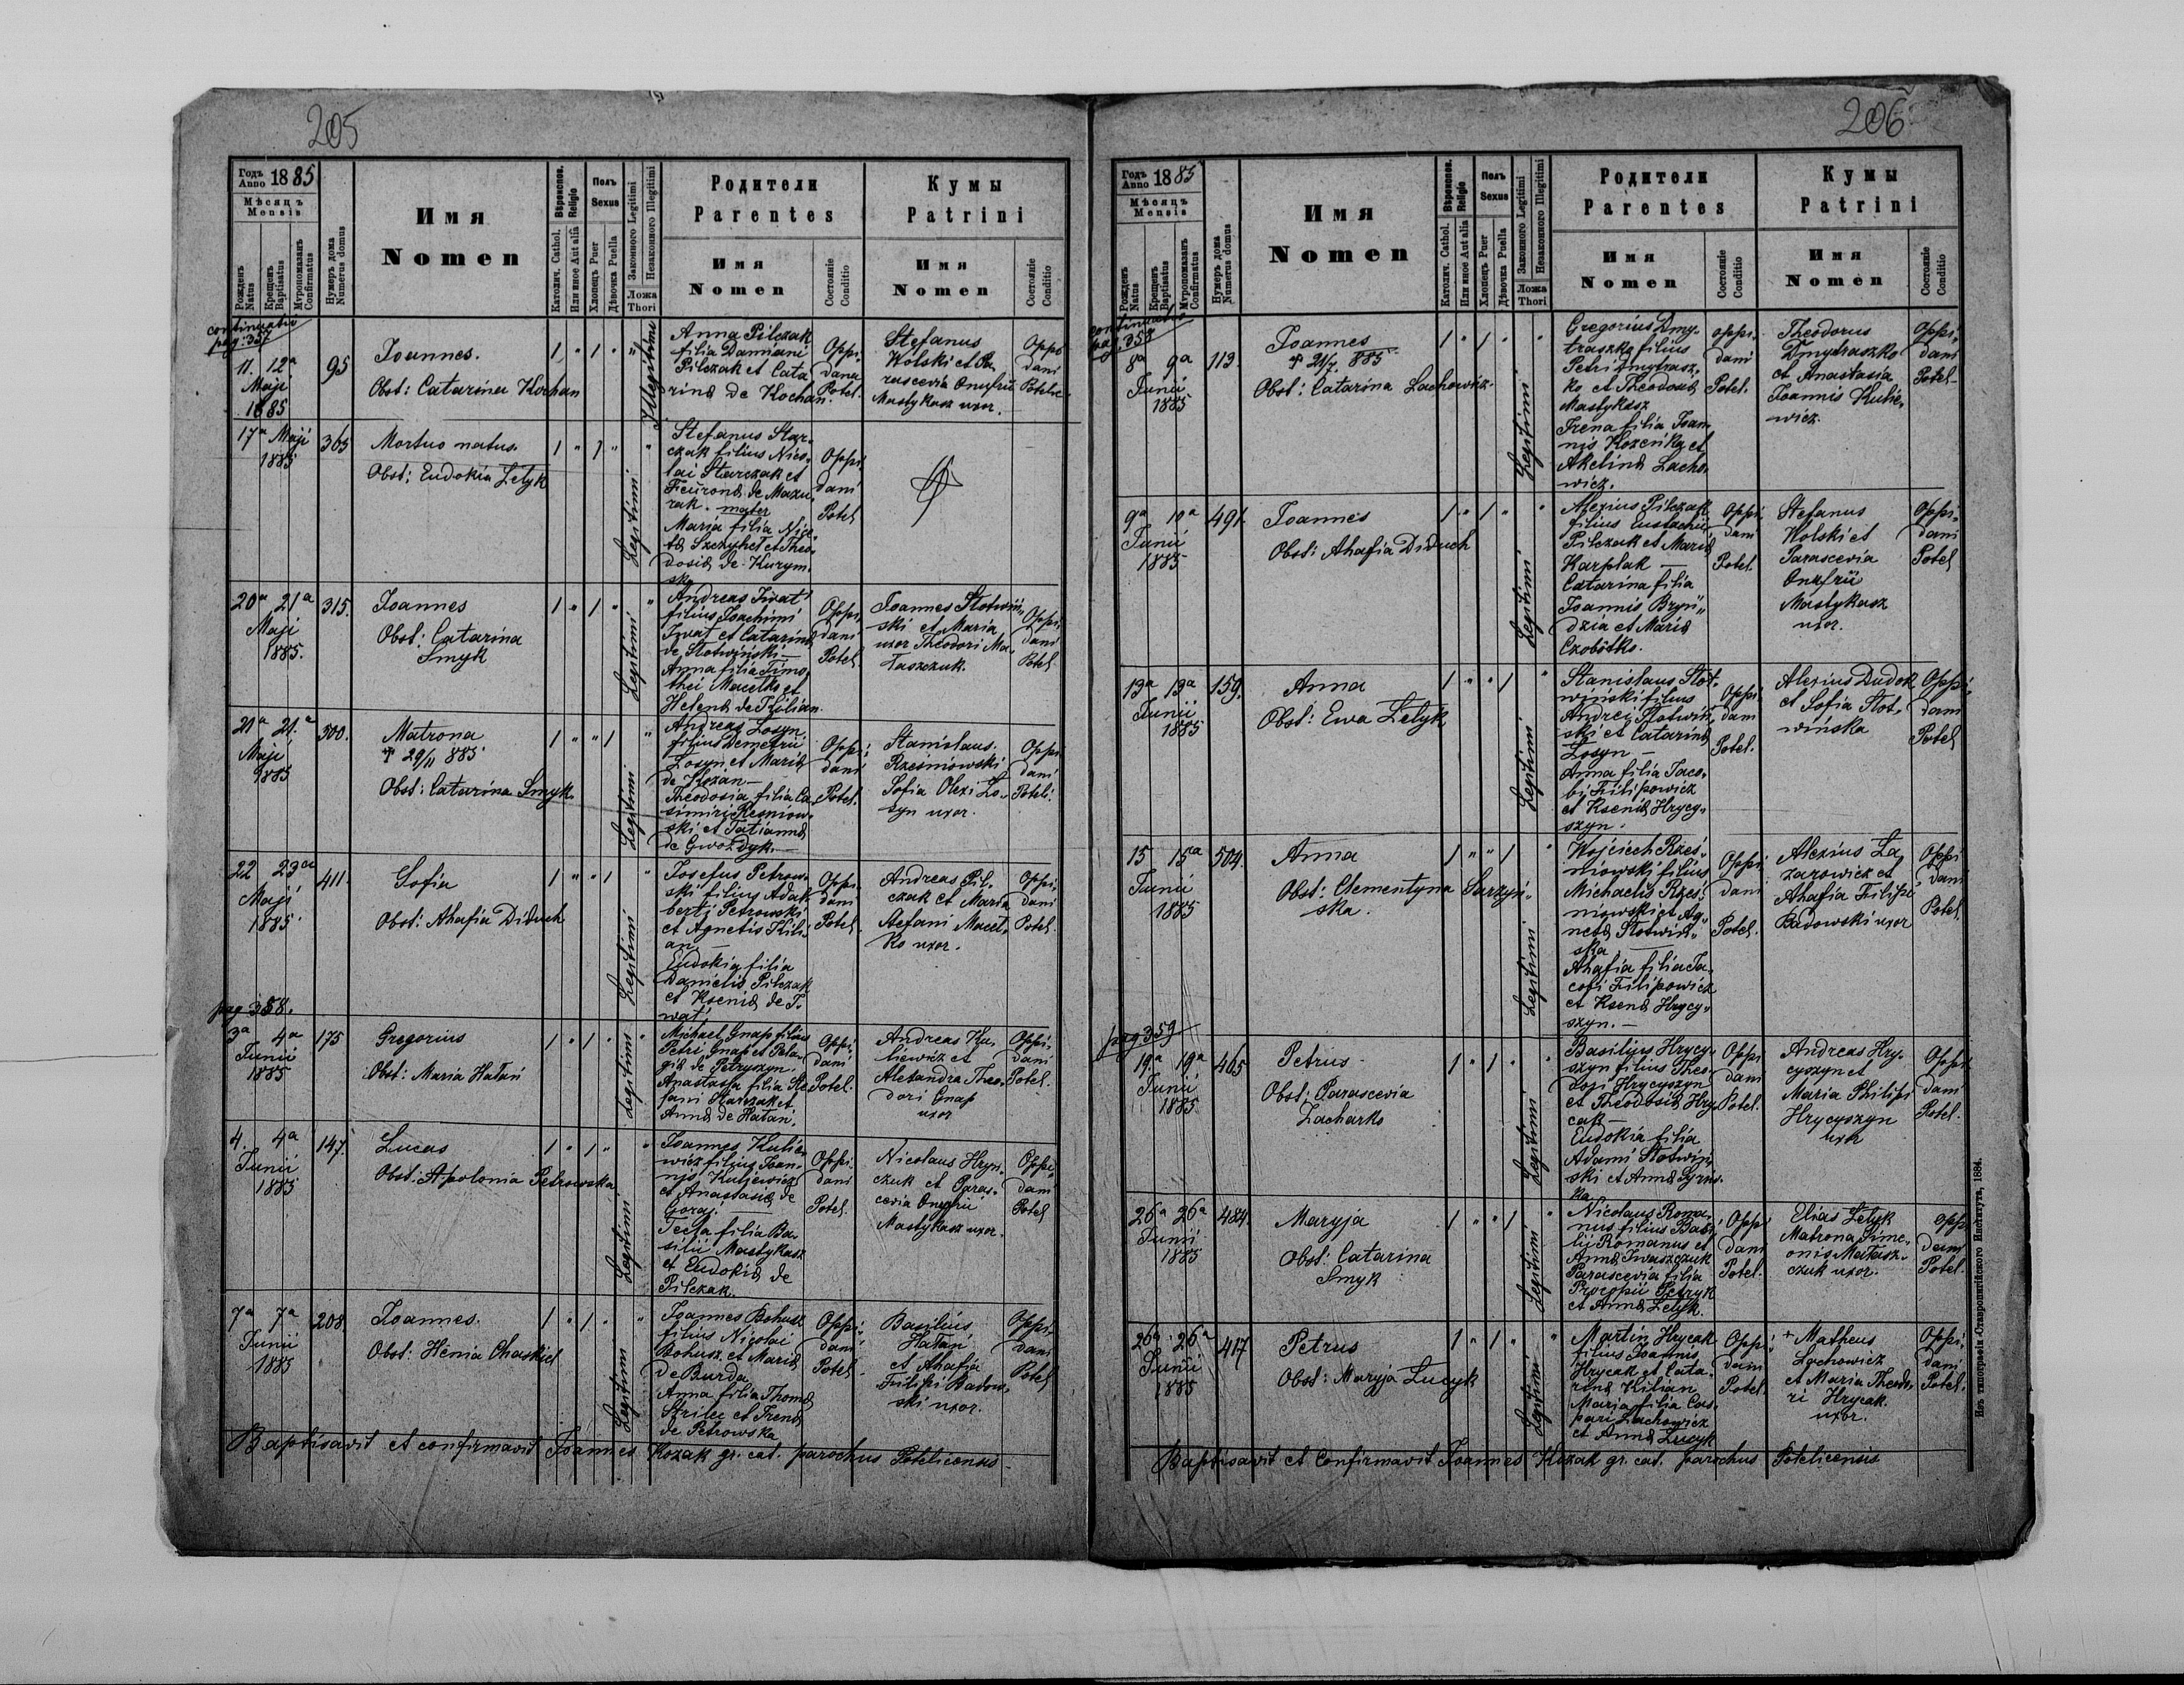 205
Годъ Anno 1885
Мѣсяцъ Mensis
Рожденъ Natus
Крещенъ Baptisatus
Мѵропомазанъ Confirmatus
Нумеръ дома Numerus domus
Имя
Nomen
Вѣроисповѣд. Religio
Католич. Cathol.
Или иное Aut alia
Полъ Sexus
Хлопецъ Puer
Дѣвочка Puella
Законного Legitimi
Незаконного Illegitimi
Ложа Thori
Родители
Parentes
Имя
Nomen
Состояніе Conditio
Кумы
Patrini
Имя
Nomen
Состояніе Conditio
continuatio
pag: 357
11. 12a
Maji
1885
95
Joannes.
Obst: Catarina Kochan
Illegitimi
Anna Pilczak
filia Damiani
Pilczak et Cata
rina de Kochan.
Oppi
dana
Potel.
Stefanus
Wolski et Pa
rascevia Onufrii
Mastykasz uxor.
Oppi
dani
17a Maji
1885
365
Mortuo natus.
Obst: Eudokia Letyk
Legitimi
Stefanus Star,
czak filius Nico,
lai Starczak et
de Mazu,
rak. mater
Maria filia Nice,
ta et Theo,
dosia de Kurym,
Oppi,
dani
Potel
20a 21a
Maji
1885.
315.
Joannes
Obst: Catarina
Smyk
Legitimi
Andreas Iwat
filius Joachimi
Iwat et Catarina
de Slotwiński —
Anna filia Timo,
thei Macełko et
Helena de Kilian.
Oppi,
dani
Potel
Joannes Slotwiń,
ski et Maria
uxor Theodori Ma,
taszczuk.
Oppi,
dani
Potel
21a 21.a
Maji
1885
500.
Matrona
✝ 29/11 885
Obst: Catarina Smyk
Legitimi
Andreas Losyn
filius Demetrii
Losyn et Maria
de Kozan —
Theodosia filia Ca,
simiri Resniow,
ski et Tatianna
de Gwozdyk. —
Oppi,
dani
Potel.
Stanislaus
Rzesniowski
Sofia Olexi Lo,
syn uxor.
Oppi
dani
Poteli.
22 23a
Maji
1885
411.
Sofia
Obst: Ahafia Diduch
Legitimi
Josefus Petrow,
ski filius Adal,
berti Petrowski
et Agnetis Kili,
an, —
Eudokia filia
Danielis Pilczak
et Ksenia de I,
wat.
Oppi,
dani
Potel.
Andreas Pil,
czak et Maria
Stefani Maceł,
ko uxor.
Oppi,
dani
Potel.
pag 358.
3a 4a
Junii
1885
175
Gregorius
Obst: Maria Hatań
Legitimi
Michael Gnap filius
Petri Gnap et Pela,
gia de Petryszyn.
Anastasia filia Ste
fani Starczak et
Anna de Hatań.
Oppi,
dani
Potel.
Andreas Ku,
liewicz et
Alexandra Theo,
dori Gnap
uxor
Oppi,
dani
Potel.
4. 4a
Junii
1885
147.
Lucas
Obst: Apolonia Petrowska
Legitimi
Joannes Kulie,
wicz filius Joan,
nis Kuliewicz
et Anastasia de
Goraj. —
Tecla filia Ba,
silii Mastykasz
et Eudokia de
Pilczak.
Oppi
dani
Potel.
Nicolaus Hryn,
czuk et Paras,
cevia Onufrii
Mastykasz uxor.
Oppi,
dani
Potel
7a 7a
Junii
1885
208
Joannes.
Obst: Henia Chaskiel
Legitimi
Joannes Bohusz
filius Nicolai
Bohusz et Maria
de Burda
Anna filia Thoma
Strilec et Irena
de Petrowska
Oppi,
dani
Potel.
Basilius
Hatań
et Ahafia
Filipi Badow,
ski uxor.
Oppi,
dani
Potel
Baptisavit et confirmavit Joannes Kozak gr. cat. parochus Potelicensis
206
Годъ Anno 1885
Мѣсяцъ Mensis
Рожденъ Natus
Крещенъ Baptisatus
Мѵропомазанъ Confirmatus
Нумеръ дома Numerus domus
Имя
Nomen
Вѣроисповѣд. Religio
Католич. Cathol.
Или иное Aut alia
Полъ Sexus
Хлопецъ Puer
Дѣвочка Puella
Законного Legitimi
Незаконного Illegitimi
Ложа Thori
Родители
Parentes
Имя
Nomen
Состояніе Conditio
Кумы
Patrini
Имя
Nomen
Состояніе Conditio
continuatio
pag. 358
8a 9a
Junii
1885
113.
Joannes
✝ 21/7 885
Obst: Catarina Lachowicz
Legitimi
Gregorius Dmy,
traszko filius
Petri Dmytrasz,
ko et Theodosia
Mastykasz
Irena filia Joan,
nis Kozeńka et
Akelina Lacho,
wicz.
oppi,
dani
Potel.
Theodorus
Dmytraszko
et Anastasia
Joannis Kulie,
wicz.
Oppi,
dani
Potel
9a 10a
Junii
1885
491.
Joannes
Obst: Ahafia Diduch
Legitimi
Alexius Pilczak
filius Eustachii
Pilczak et Maria
Karplak —
Catarina filia
Joannis Bryn,
dzia et Maria
Czobotko.
Oppi,
dani
Potel.
Stefanus
Wolski et
Parascevia
Onufrii
Mastykasz
uxor.
Oppi,
dani
Potel
13a 13a
Junii
1885
159.
Anna
Obst: Ewa Letyk
Legitimi
Stanislaus Slot,
wiński filius
Andrei Slotwiń,
ski et Catarina
Losyn —
Anna filia Jaco,
bi Filipowicz
et Ksenia Hrycy,
szyn.
Oppi,
dani
Potel.
Alexius Dudok
et Sofia Slot,
wińska
Oppi,
dani
Potel
15 15a
Junii
1885
504.
Anna
Obst: Clementyna Sarzyń,
ska.
Legitimi
Wojciech Rześ,
niowski filius
Michaelis Rześ,
niowski et Ag,
neta Slotwiń,
ska —
Ahafia filia Ja,
cobi Filipowicz
et Ksena Hrycy,
szyn. —
Oppi,
dani
Potel.
Alexius La,
zarowicz et
Ahafia Filipi
Badowski uxor
Oppi
dani
Potel.
pag 359
19a 19a
Junii
1885
465
Petrus
Obst: Parascevia
Zacharko
Legitimi
Basilius Hrycy,
szyn filius Theo,
dosi Hrycyszyn
et Theodosia Hry,
cak —
Eudokia filia
Adami Slotwiń,
ski et Anna Syrus,
ka
Oppi
dani
Potel.
Andreas Hry,
cyszyn et
Maria Philipi
Hrycyszyn
uxor
Oppi
dani
Potel.
26a 26a
Junii
1885
484.
Maryja
Obst: Catarina
Smyk
Legitimi
Nicolaus Roma,
nus filius Basi,
lij Romanus et
Anna Iwaszczuk
Parascevia filia
Procopii Petryk
et Anna Letyk.
Oppi
dani
Potel.
Elias Letyk
Matrona Sime,
onis Matasz,
czuk uxor.
opp
dani
Potel.
26a 26a
Junii
1885
417
Petrus
Obst: Maryja Lucyk
Legitimi
Martin Hrycak
filius Joannis
Hrycak et Cata,
rina Kilian
Maria filia Cas,
pari Lachowicz
et Anna Lucyk
Oppi,
dani
Potel.
Matheus
Lachowicz
et Maria Theodo,
ri Hrycak
uxor.
Oppi,
dani
Potel.
Baptisavit et Confirmavit Joannes Kozak gr. cat. parochus Potelicensis
Изъ типографіи Ставропигійского Института, 1884.